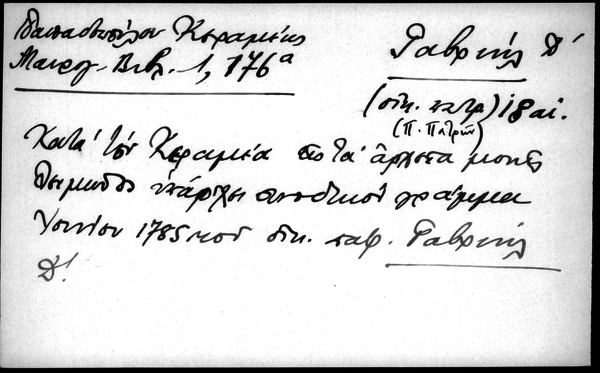 Παπαδοπούλου Κεραμέως
Μαυρογ. Βιβλ. 1, 176α
Γαβριήλ Δ΄
(οἰκ. πατρ.) 18 αἰ.
(Π. Πατρῶν)
Κατά τόν Κεραμέα εἰς τά ἄρχεια μονῆς
ὑπάρχει συνοδικόν γράμμα
Ἰουνίου 1785 τοῦ οἰκ. πατρ. Γαβριήλ
Δ΄.